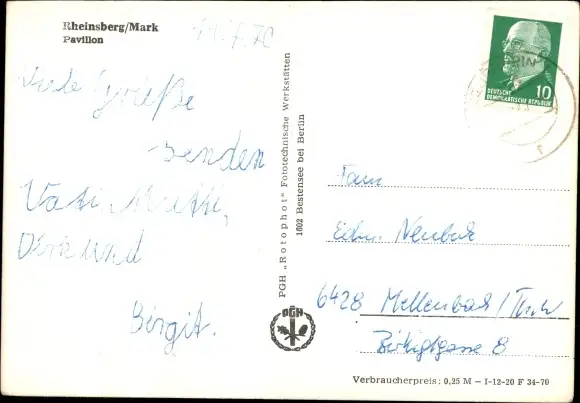 Rheinsberg/Mark
Pavillon
Viele Grüße
senden
Vati, Mutti,
Dirk und
Birgit.
PGH „Rotophot" Fototechnische Werkstätten
1602 Bestensee bei Berlin
PGH
DEUTSCHE
DEMOKRATISCHE REPUBLIK
10
Fam
Neubak
6428 Mellenbach/Thür
Birkiggasse 8
Verbraucherpreis: 0,25 M – I-12-20 F 34-70